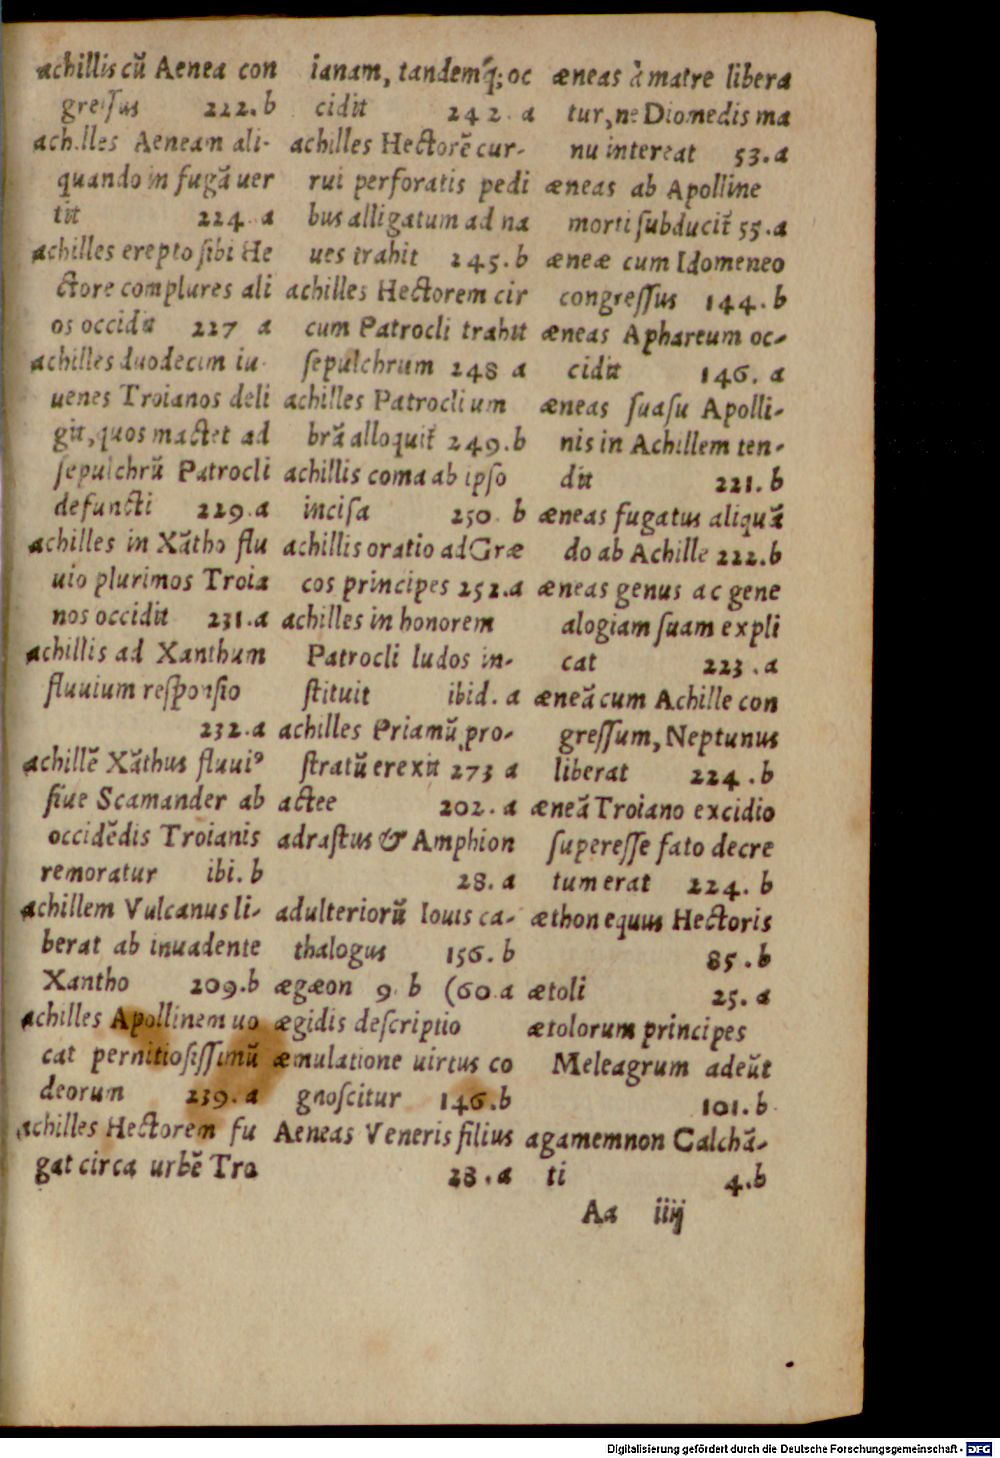 achillis cũ Aenea con
greſſus 222. b
achilles Aeneam ali-
quando in fugã uer
tit 224. a
achilles erepto ſibi He
ctore complures ali
os occidit 227 a
achilles duodecim iu-
uenes Troianos deli
git, quos mactet ad
ſepulchrũ Patrocli
defuncti 229. a
achilles in Xãtho flu
uio plurimos Troia
nos occidit 231. a
achillis ad Xanthum
fluuium reſponſio
232. a
achillẽ Xãthus fluuiꝰ
ſiue Scamander ab
occidẽdis Troianis
remoratur ibi. b
achillem Vulcanus li-
berat ab inuadente
Xantho 209. b
achilles Apollinem uo
cat pernitioſiſſimũ
deorum 239. a
achilles Hectorem fu
gat circa urbẽ Tro
ianam, tandemq́; oc
cidit 242. a
achilles Hectorẽ cur-
rui perforatis pedi
bus alligatum ad na
ues trahit 245. b
achilles Hectorem cir
cum Patrocli trahit
ſepulchrum 248 a
achilles Patrocli um
brã alloquit̃ 249. b
achillis coma ab ipſo
inciſa 250. b
achillis oratio ad Græ
cos principes 252. a
achilles in honorem
Patrocli ludos in-
ſtituit ibid. a
achilles Priamũ pro-
ſtratũ erexit 273 a
actee 202. a
adraſtus & Amphion
28. a
adulteriorũ Iouis ca-
thalogus 156. b
ægæon 9. b (60. a
ægidis deſcriptio
æmulatione uirtus co
gnoſcitur 146. b
Aeneas Veneris filius
28. a
æneas à matre libera
tur, ne Diomedis ma
nu intereat 53. a
æneas ab Apolline
morti ſubducit̃ 55. a
æneæ cum Idomeneo
congreſſus 144. b
æneas Aphareum oc-
cidit 146. a
æneas ſuaſu Apolli-
nis in Achillem ten-
dit 221. b
æneas fugatus aliquã
do ab Achille 222. b
æneas genus ac gene
alogiam ſuam expli
cat 223. a
æneã cum Achille con
greſſum, Neptunus
liberat 224. b
æneã Troiano excidio
ſupereſſe fato decre
tum erat 224. b
æthon equus Hectoris
85. b
ætoli 25. a
ætolorum principes
Meleagrum adeũt
101. b
agamemnon Calchã-
ti 4. b
Aa iiij
Digitalisierung gefördert durch die Deutsche Forschungsgemeinschaft - DFG